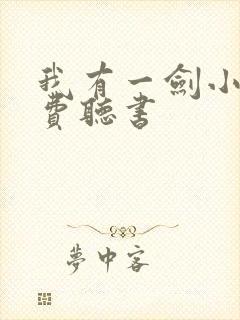 我有一劍小
費聽書
夢中客